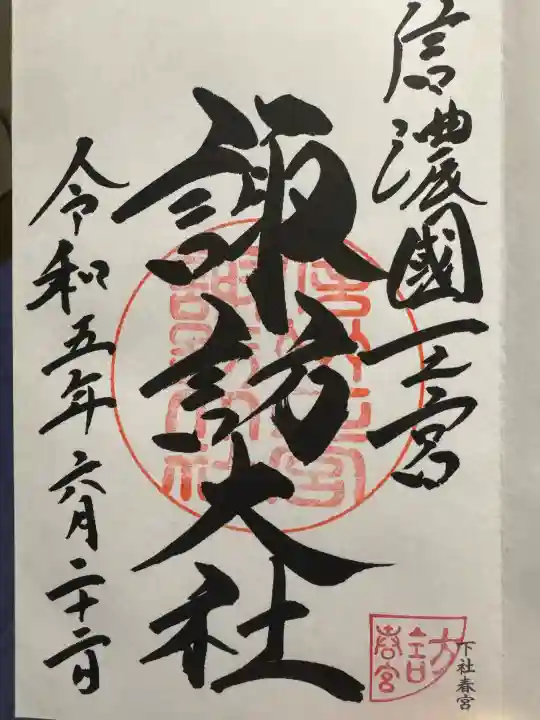 信濃國一之宮
諏訪大社
令和五年六月二十二日
下社春宮